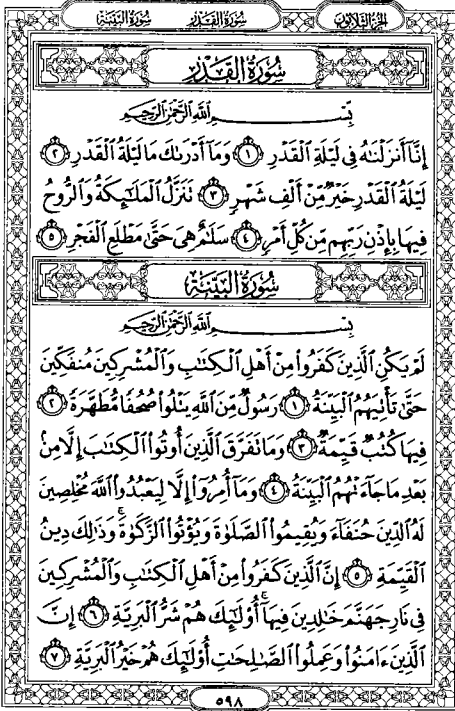 الجزء الثلاثون سورة القدر سورة البينة
سُورَةُ القَدْرِ
بِسْمِ اللَّهِ الرَّحْمَٰنِ الرَّحِيمِ
إِنَّا أَنزَلْنَٰهُ فِي لَيْلَةِ ٱلْقَدْرِ ١ وَمَا أَدْرَىٰكَ مَا لَيْلَةُ ٱلْقَدْرِ ٢
لَيْلَةُ ٱلْقَدْرِ خَيْرٌ مِّنْ أَلْفِ شَهْرٍ ٣ تَنَزَّلُ ٱلْمَلَٰٓئِكَةُ وَٱلرُّوحُ
فِيهَا بِإِذْنِ رَبِّهِم مِّن كُلِّ أَمْرٍ ٤ سَلَٰمٌ هِيَ حَتَّىٰ مَطْلَعِ ٱلْفَجْرِ ٥
سُورَةُ البَيِّنَةِ
بِسْمِ اللَّهِ الرَّحْمَٰنِ الرَّحِيمِ
لَمْ يَكُنِ ٱلَّذِينَ كَفَرُوا۟ مِنْ أَهْلِ ٱلْكِتَٰبِ وَٱلْمُشْرِكِينَ مُنفَكِّينَ
حَتَّىٰ تَأْتِيَهُمُ ٱلْبَيِّنَةُ ١ رَسُولٌ مِّنَ ٱللَّهِ يَتْلُوا۟ صُحُفًا مُّطَهَّرَةً ٢
فِيهَا كُتُبٌ قَيِّمَةٌ ٣ وَمَا تَفَرَّقَ ٱلَّذِينَ أُوتُوا۟ ٱلْكِتَٰبَ إِلَّا مِنۢ
بَعْدِ مَا جَآءَتْهُمُ ٱلْبَيِّنَةُ ٤ وَمَآ أُمِرُوٓا۟ إِلَّا لِيَعْبُدُوا۟ ٱللَّهَ مُخْلِصِينَ
لَهُ ٱلدِّينَ حُنَفَآءَ وَيُقِيمُوا۟ ٱلصَّلَوٰةَ وَيُؤْتُوا۟ ٱلزَّكَوٰةَ وَذَٰلِكَ دِينُ
ٱلْقَيِّمَةِ ٥ إِنَّ ٱلَّذِينَ كَفَرُوا۟ مِنْ أَهْلِ ٱلْكِتَٰبِ وَٱلْمُشْرِكِينَ
فِي نَارِ جَهَنَّمَ خَٰلِدِينَ فِيهَآ أُو۟لَٰٓئِكَ هُمْ شَرُّ ٱلْبَرِيَّةِ ٦ إِنَّ
ٱلَّذِينَ ءَامَنُوا۟ وَعَمِلُوا۟ ٱلصَّٰلِحَٰتِ أُو۟لَٰٓئِكَ هُمْ خَيْرُ ٱلْبَرِيَّةِ ٧
٥٩٨